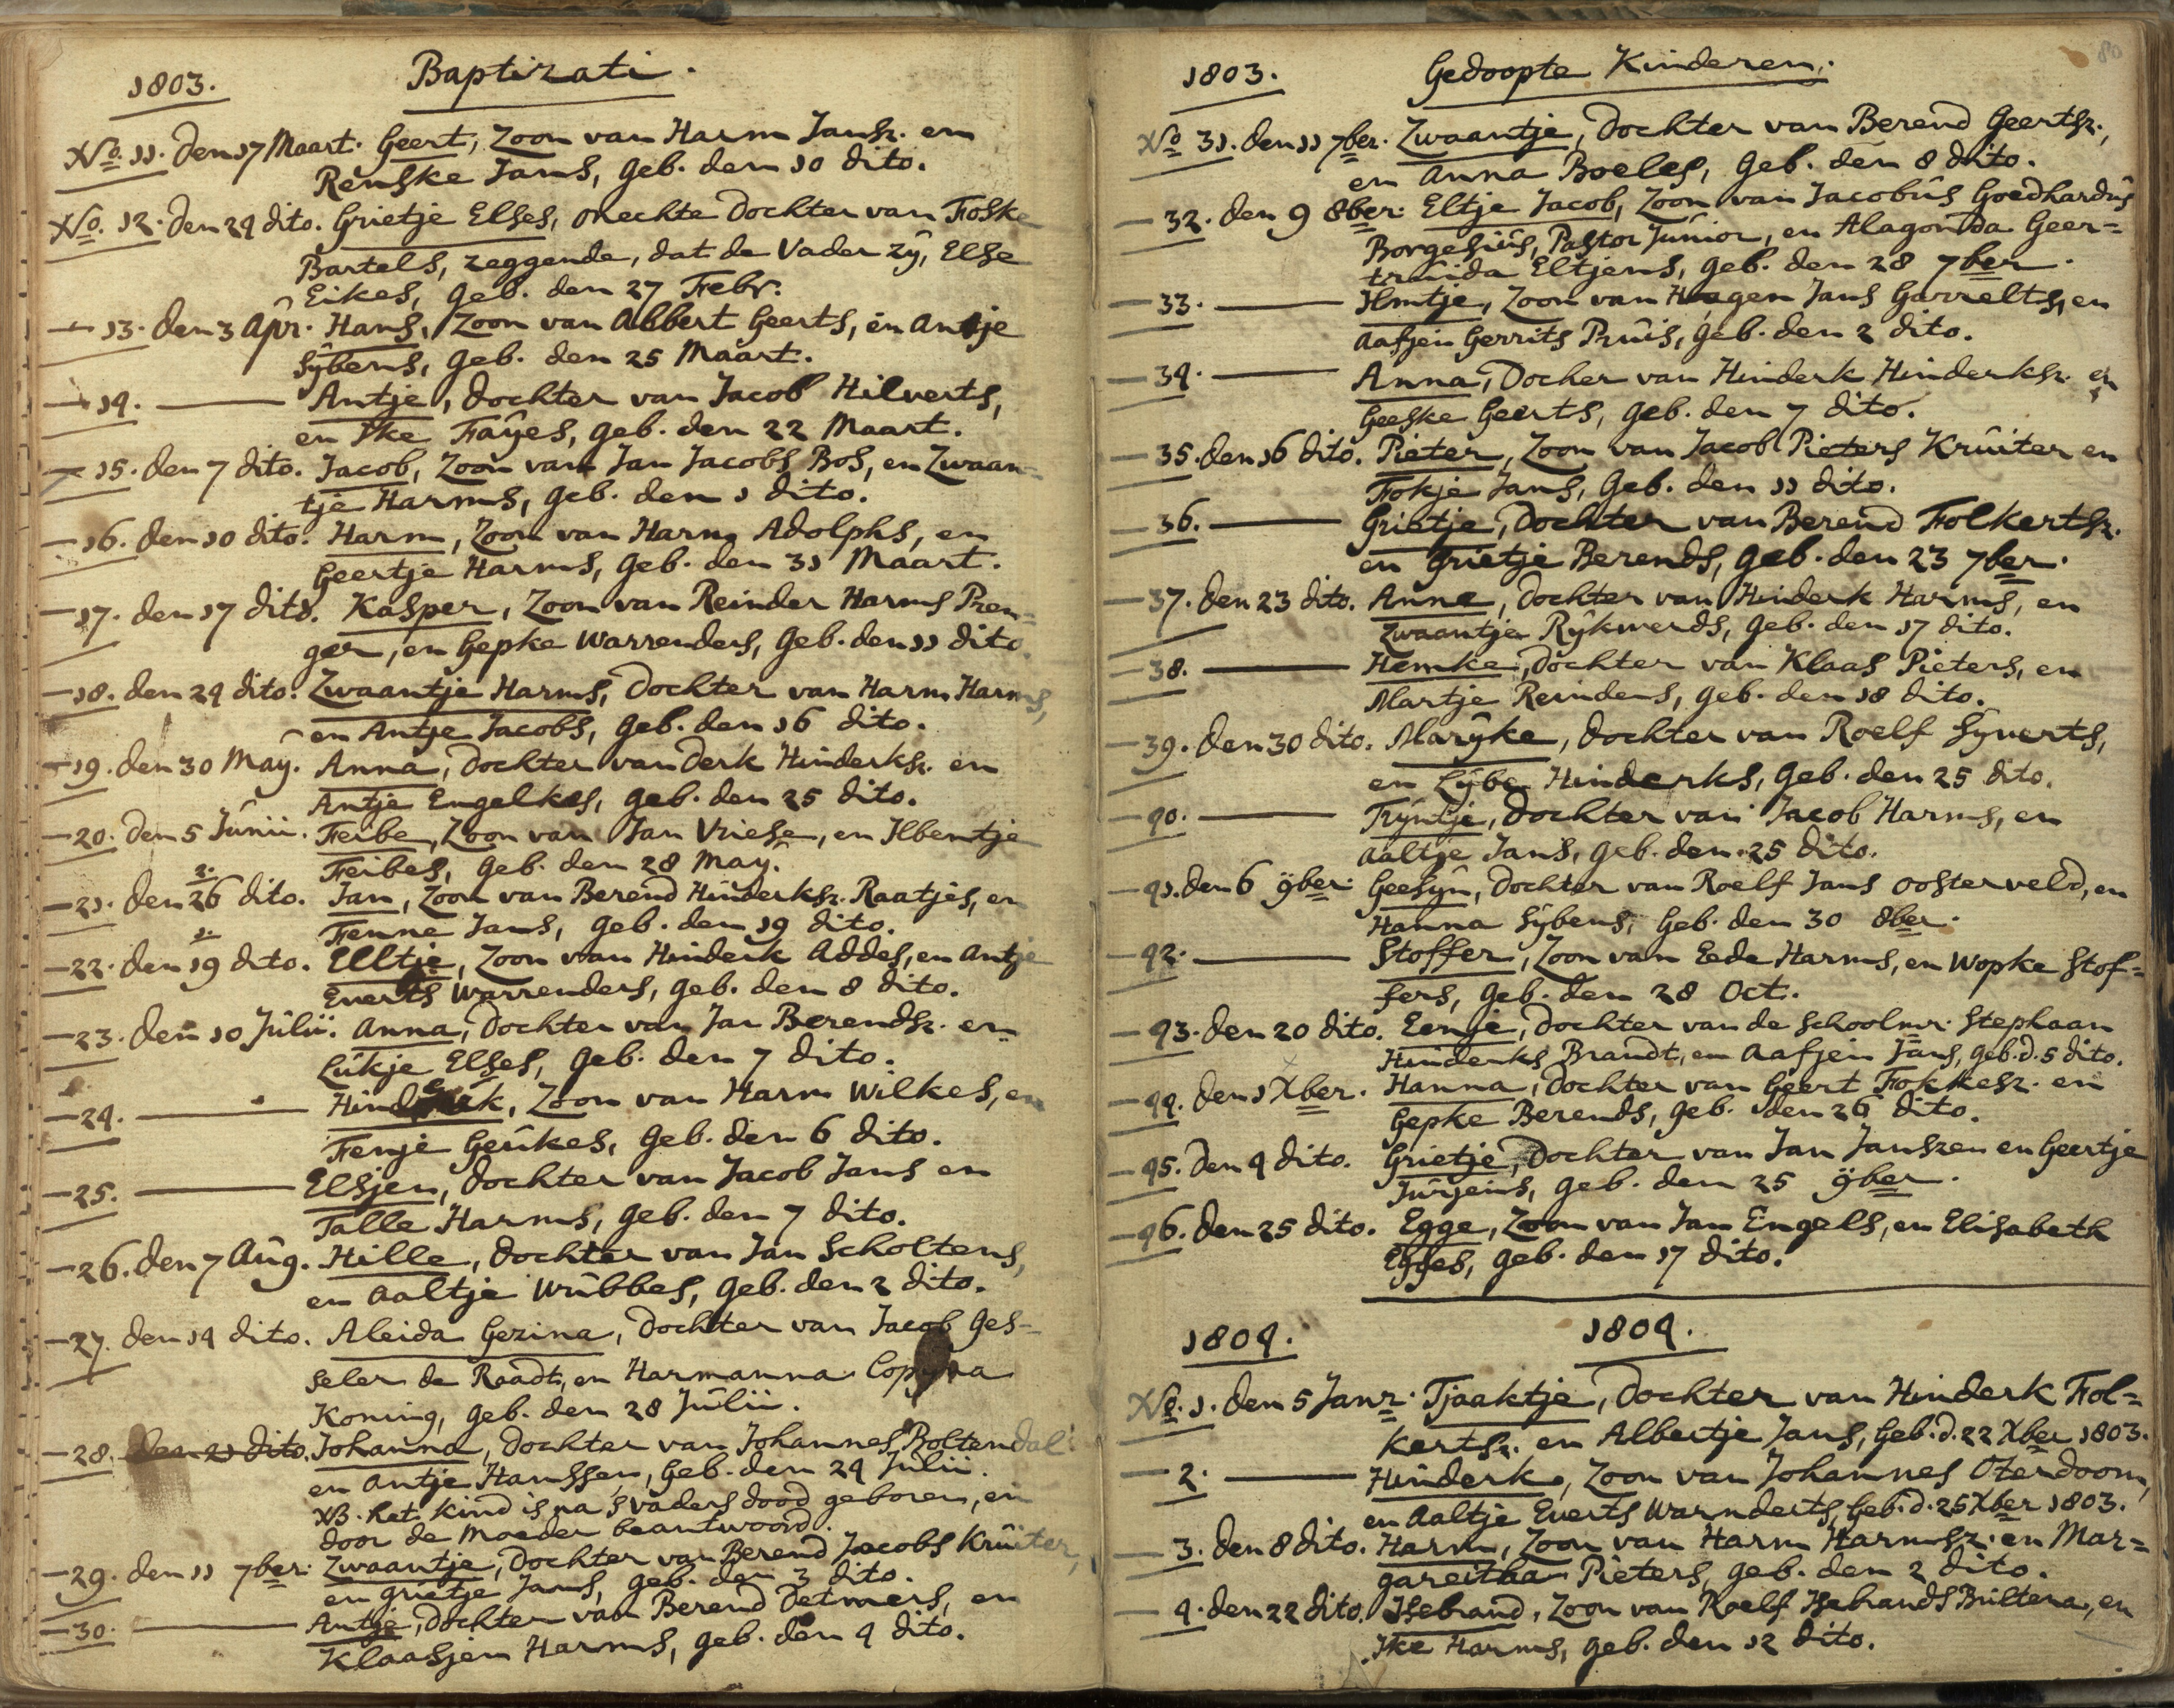 1803. Baptizati.
No. 11. den 17 Maart. Geert, Zoon van Harm Jansz. en
Renske Jans, geb. den 10 dito.
No. 12. den 24 dito. Grietje Elses, onechte Dochter van Foske
Bartels, zeggende, dat de Vader zÿ, Else
Eikes, geb. den 27 Febr.
13. den 3 Apr. Hans, Zoon van Abbert Geerts, en Antje
Sÿbens, geb. den 25 Maart.
14. Antje, Dochter van Jacob Hilverts,
en Ike Faÿes, geb. den 22 Maart.
15. den 7 dito. Jacob, Zoon van Jan Jacobs Bos, en Zwaan=
tje Harms, geb. den 1 dito.
16. den 10 dito. Harm, Zoon van Harm Adolphs, en
Geertje Harms, geb. den 31 Maart.
17. den 17 dito. Kasper, Zoon van Reinder Harms Pren=
ger, en Gepke Warrenders, geb. den 11 dito.
18. den 24 dito. Zwaantje Harms, Dochter van Harm Harms,
en Antje Jacobs, geb. den 16 dito.
19. den 30 Maÿ. Anna, Dochter van Derk Hinderksz. en
Antje Engelkes, geb. den 25 dito.
20. den 5 Junii. Feibe, Zoon van Jan Vriese, en Ilbentje
Feibes, geb. den 28 Maÿ.
2.
21. den 26 dito. Jan, Zoon van Berend Hinderksz. Raatjes, en
Fenne Jans, geb. den 19 dito.
1.
22. den 19 dito. Eltje, Zoon van Hinderk Addes, en Antje
Everts Warrenders, geb. den 8 dito.
23. den 10 Julii. Anna, Dochter van Jan Berendsz. en
Lukje Elses, geb. den 7 dito.
24. Hinderk, Zoon van Harm Wilkes, en
Fenje Geukes, geb. den 6 dito.
25. Elsjen, Dochter van Jacob Jans en
Talle Harms, geb. den 7 dito.
26. den 7 Aug. Hille, Dochter van Jan Scholtens,
en Aaltje Wubbes, geb. den 2 dito.
27. den 14 dito. Aleida Gezina, Dochter van Jacob Ges=
seler de Raadt, en Harmanna
Koning, geb. den 28 Julii.
28. den 21 dito. Johanna, Dochter van Johannes Boltendal
en Antje Hanssen, geb. den 24 Julii.
NB. het kind is na 's vaders dood geboren, en
door de moeder beantwoord.
29. den 11 7ber. Zwaantje, Dochter van Berend Jacobs Kruiter,
en Grietje Jans, geb. den 3 dito.
30. Antje, Dochter van Berend Detmers, en
Klaasjen Harms, geb. den 4 dito.
80
1803. Gedoopte Kinderen.
No 31. den 11 7ber. Zwaantje, Dochter van Berend Geertsz.,
en Anna Boeles, geb. den 8 dito.
32. den 9 8ber. Eltje Jacob, Zoon van Jacobus Goedhardus
Borgesius, Pastor Junior, en Alagonda Geer=
truida Eltjens, geb. den 28 7ber.
33. Ilmtje, Zoon van Haagen Jans Garrelts, en
Aafjen Gerrits Pruis, geb. den 2 dito.
34. Anna, Docher van Hinderk Hinderksz. en
Geeske Geerts, geb. den 7 dito.
35. den 16 dito. Pieter, Zoon van Jacob Pieters Kruiter en
Fokje Jans, geb. den 11 dito.
36. Grietje, Dochter van Berend Folkertsz.
en Grietje Berends, geb. den 23 7ber.
37. den 23 dito. Anna, Dochter van Hinderk Harms, en
Zwaantje Rÿkwerds, geb. den 17 dito.
38. Hemke, Dochter van Klaas Pieters, en
Martje Reinders, geb. den 18 dito.
39. den 30 dito. Marÿke, Dochter van Roelf Sÿverts,
en Lÿbe Hinderks, geb. den 25 dito.
40. Trÿntje, Dochter van Jacob Harms, en
Aaltje Jans, geb. den 25 dito.
41. den 6 9ber. Geesÿn, Dochter van Roelf Jans Oosterveld, en
Hanna Sÿbens, geb. den 30 8ber.
42. Stoffer, Zoon van Eede Harms, en Wopke Stof=
fers, geb. den 28 Oct.
43. den 20 dito. Eenje, Dochter van de Schoolmr. Stephaan
Hinderks Brandt, en Aafjen Jans, geb. d. 5 dito.
44. den 1 Xber. Hanna, Dochter van Geert Fokkesz. en
Gepke Berends, geb. den 26 dito.
45. den 4 dito. Grietje, Dochter van Jan Janszen en Geertje
Jurjens, geb. den 25 9ber.
46. den 25 dito. Egge, Zoon van Jan Engels, en Elisabeth
Egges, geb. den 17 dito.
1804. 1804.
No. 1. den 5 Janr. Tjaaktje, Dochter van Hinderk Fol=
kertsz. en Albertje Jans, geb. d. 22 Xber 1803.
2. Hinderk, Zoon van Johannes Oterdoom,
en Aaltje Everts Warnderts, geb. d. 25 Xber 1803.
3. den 8 dito. Harm, Zoon van Harm Harmsz. en Mar=
gareitha Pieters, geb. den 2 dito.
4. den 22 dito. Isebrand, Zoon van Roelf Isebrands Bultena, en
Ike Harms, geb. den 12 dito.